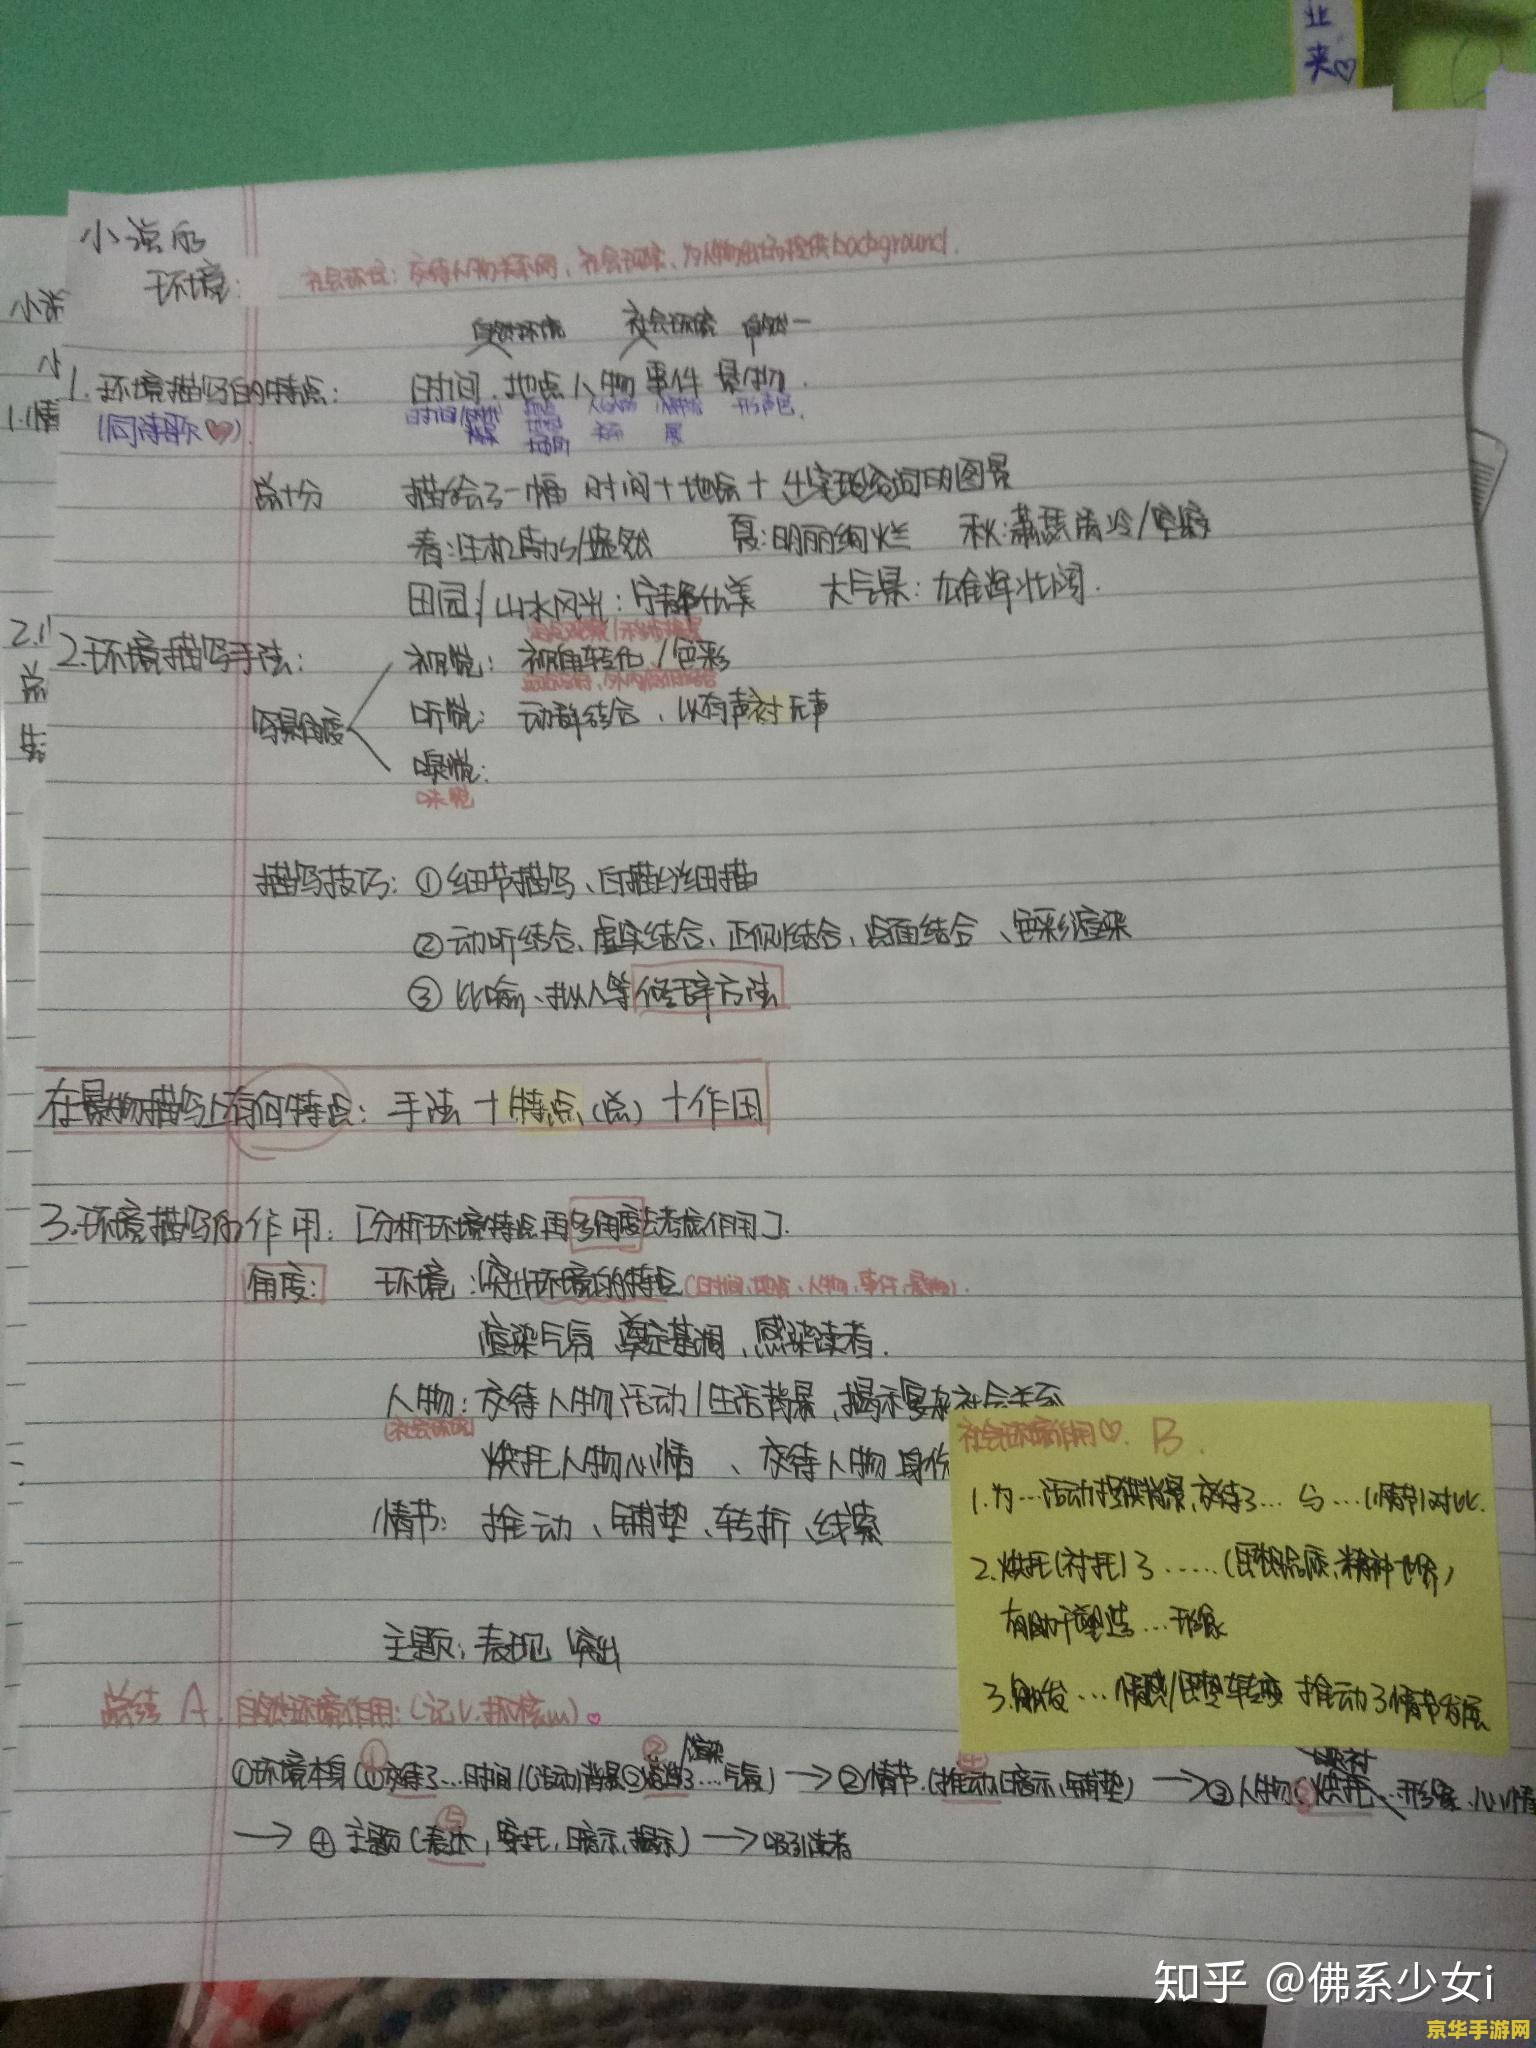 业
来♡
小说的
环境:
社会环境:交待人物关系网、社会现实、为人物出场提供background.
自然环境 社会环境 自然一
1.环境描写的特点: 时间、地点 人物 事件 景物.
(同诗歌♥).
形声色
总+分 描绘了一幅 时间+地点+ 的图景
春:生机勃勃/盎然 夏:明丽绚烂 秋:萧瑟清冷/
田园/山水风光:宁静优美 大气景:雄浑壮阔.
2.环境描写手法:
视觉:视角转化/色彩
写景角度 听觉:动静结合、以有声衬无声
嗅觉:
味觉
描写技巧:①细节描写、白描、细描
②动听结合、虚实结合、正侧结合、点面结合、色彩渲染
③比喻、拟人等修辞方法
在景物描写上有何特点:手法+特点(总)+作用
3.环境描写的作用:[分析环境特点再多角度去考虑作用].
角度: 环境:突出环境的特点(时间、地点、人物、事件、景物).
渲染气氛 奠定基调、感染读者.
人物:交待人物活动/生活背景、揭示复杂社会关系
(社会环境)
烘托人物心情、交待人物身份
情节:推动、铺垫、转折、线索
主题:表现 突出
社会环境作用♡. B.
1.为…活动提供背景,交待了…与…(情节)对比.
2.烘托(衬托)了……(思想品质、精神世界)
有助于塑造…形象
3.触发…情感/思想转变 推动了情节发展
总结 A.自然环境作用:(记v.抓核心)♥
①环境本身(①交待了…时间/(活动)背景②营造/渲染了…气氛)→②情节(推动、暗示、铺垫)→③人物(烘托…形象、心情
→④主题(表达,寄托,暗示,揭示)→吸引读者
知乎 @佛系少女i
京华手游网